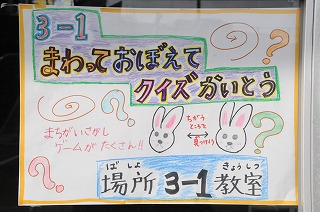 3-1
まわっておぼえて
クイズかいとう
まちがいさがし
ゲームがたくさん!!
ちがう
ところを
見つけよう
ばしょ きょうしつ
場所 3-1 教室